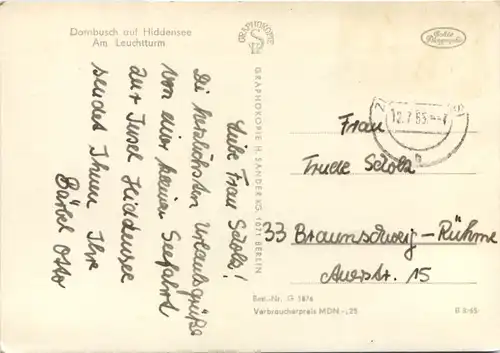 Dornbusch auf Hiddensee
Am Leuchtturm
Liebe Frau Scholz!
Die herzlichsten Urlaubsgrüße
von einer kleinen Seefahrt
zur Insel Hiddensee
sendet Ihnen Ihre
Bärbel Otto
GRAPHOKOPIE
GRAPHOKOPIE H. SANDER KG. 1071 BERLIN
Echte Photographie
12.7.65
Frau
Trude Scholz
33 Braunschweig-Rühme
Auerstr. 15
Best.-Nr. G 1876
Verbraucherpreis MDN -,25